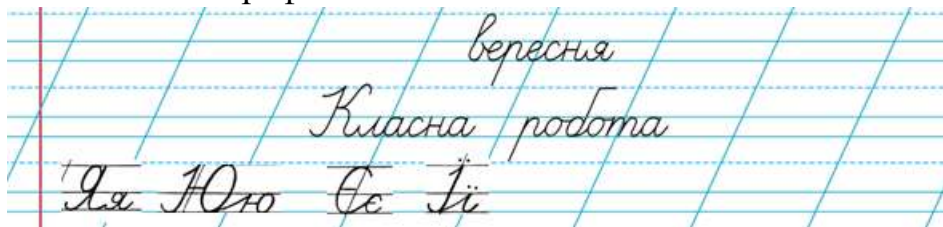 вересня
Класна робота
Яя Юю Єє Її